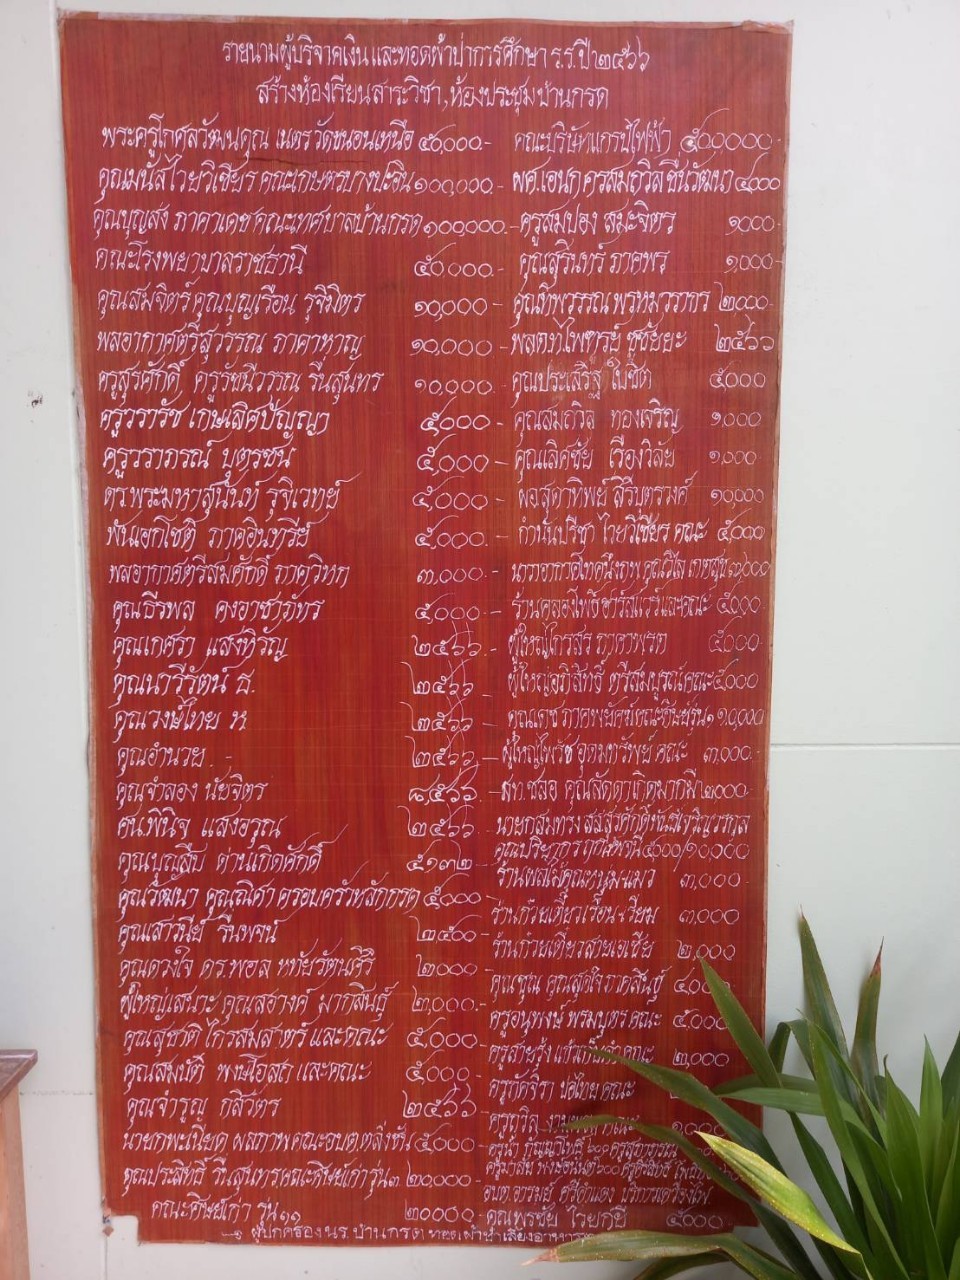 รายนามผู้บริจาคเงินและทอดผ้าป่าการศึกษา ร.ร.ปี ๒๕๖๖
สร้างห้องเรียนสาระวิชา, ห้องประชุมบ้านกรด
พระครูโกศลวัฒนคุณ เนตร วัดขนอนเหนือ ๕๐,๐๐๐.-
คุณมนัส ไวยวิเชียร คณะเกษตรบางปะอิน ๑๐๐,๐๐๐.-
คุณบุญส่ง ภาคาเดช คณะเทศบาลบ้านกรด ๑๐๐,๐๐๐.-
คณะโรงพยาบาลราชธานี ๕๐๐๐๐.-
คุณสมจิตร์ คุณบุญเรือน รุจิมิตร ๑๐,๐๐๐.-
พลอากาศตรีสุวรรณ ภาคาหาญ ๑๐,๐๐๐.-
ครูสุรศักดิ์ ครูวัชนีวรรณ รื่นสุนทร ๑๐,๐๐๐.-
ครูวรารัช เกษเลิศปัญญา ๕,๐๐๐.-
ครูวราภรณ์ บุตรชน ๕,๐๐๐.-
ดร.พระมหาสุนันท์ รุจิเวทย์ ๕,๐๐๐.-
พันเอกโชติ ภาคอินทรีย์ ๕,๐๐๐.-
พลอากาศตรีสมศักดิ์ ภาควิหก ๓,๐๐๐.-
คุณธีรพล คงอาชาภัทร ๕,๐๐๐.-
คุณเกศรา แสงหิรัญ ๒๕๖๖.-
คุณนารีรัตน์ ธ. ๒๕๖๖
คุณวงษ์ไทย ห ๒๕๖๖
คุณอำนวย.- ๒๕๖๖
คุณจำลอง นัยจิตร ๘,๕๖๖.-
ศน.พินิจ แสงอรุณ ๒๕๖๖
คุณบุญสืบ ด่านเกิดศักดิ์ ๕๑๓๒.-
คุณวัฒนา คุณณิศา ครอบครัวหลักกรด ๕๐๐๐
คุณเสาวนีย์ รื่นพจน์ ๒๕๐๐.-
คุณดวงใจ ดร.พอล หทัยรัตนศิริ ๒๐๐๐.-
ผู้ใหญ่เสนาะ คุณสอางค์ มากสินธุ์ ๒,๐๐๐.-
คุณสุชาติ ไกรสมสาตร์ และคณะ ๕,๐๐๐.-
คุณสมบัติ พงษ์โอสถ และคณะ ๕๐๐๐.-
คุณจำรูญ กสิวัตร ๒๕๖๖
คณะ อบต.ตลิ่งชัน ๕๐๐๐
คุณประสิทธิ์ รื่นสุนทร คณะศิษย์เก่ารุ่น ๓ ๒๐๐๐๐.-
คณะศิษย์เก่า รุ่น ๑๑ ๒๐๐๐๐.-
คณะบริษัทแกรป์ไฟฟ้า ๕๐๐,๐๐๐.-
ผศ.เอนก ครูสมถวิล ชื่นวัฒนา ๔,๐๐๐
ครูสมปอง สมะจิตร ๑,๐๐๐
คุณสุรินทร์ ภาคพร ๑,๐๐๐
คุณทิพวรรณ พรหมวรากร ๒๐๐๐
พลต.ท ไพฑูรย์ ชูชัยยะ ๒๕๖๖
คุณประเสริฐ ใบชิต ๕๐๐๐
คุณสมถวิล ทองเจริญ ๑,๐๐๐
คุณเลิศชัย เรืองวิลัย ๑,๐๐๐
ผอ.สุดาทิพย์ สิริบุตรวงศ์ ๑๐,๐๐๐
กำนันปรีชา ไวยวิเชียร คณะ ๕,๐๐๐
ร้านคลองโพธิ์ฮาร์ดแวร์และคณะ ๕,๐๐๐
ผู้ใหญ่ไกรสร ภาคาพรต ๕๐๐๐
ผู้ใหญ่อภิสิทธิ์ ตรีสมบูรณ์คณะ ๕,๐๐๐
คุณเดช ภาคพยัคฆ์ คณะศิษย์รุ่น ๑ ๑๐,๐๐๐
ผู้ใหญ่ไพรัช อุดมทรัพย์ คณะ ๓,๐๐๐.
สท.ชลอ คุณลัดดา เกิดมากมี ๒๐๐๐.
๕๐๐๐/๑๐,๐๐๐
ร้านผลไม้คุณหนุ่ม+แมว ๓,๐๐๐
ร้านก๋วยเตี๋ยวเรือน+เรียม ๓,๐๐๐
ร้านก๋วยเตี๋ยวสายเอเชีย ๒,๐๐๐
คุณชุณ คุณสุดใจ ภาคสินธุ์
ครูอนุพงษ์ พรมบุตร คณะ ๕,๐๐๐
คณะ ๒,๐๐๐
ครูภัคจิรา คณะ
ครูถวิล คณะ ๑๐๐๐
คุณพรชัย ไวยกูล ๕๐๐๐
ผู้ปกครอง นร.บ้านกรด ทอดผ้าป่าเลี้ยงอาหาร